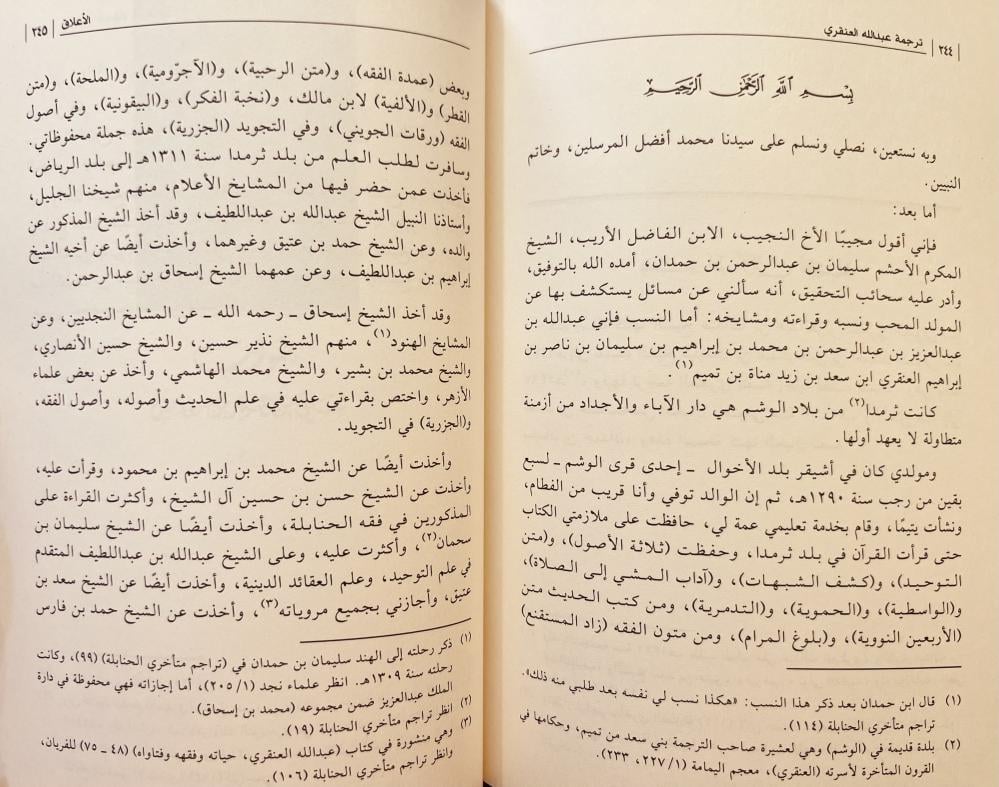 ترجمة عبدالله العنقري
٢٤٤
بِسْمِ اللَّهِ الرَّحْمَٰنِ الرَّحِيمِ
وبه نستعين، نصلي ونسلم على سيدنا محمد أفضل المرسلين، وخاتم
النبيين.
أما بعد:
فإني أقول مجيبًا الأخ النجيب، الابن الفاضل الأريب، الشيخ
المكرم الأحشم سليمان بن عبدالرحمن بن حمدان، أمده الله بالتوفيق،
وأدر عليه سحائب التحقيق، أنه سألني عن مسائل يستكشف بها عن
المولد المحب ونسبه وقراءته ومشايخه: أما النسب فإني عبدالله بن
عبدالعزيز بن عبدالرحمن بن محمد بن إبراهيم بن سليمان بن ناصر بن
إبراهيم العنقري ابن سعد بن زيد مناة بن تميم(١).
كانت ثرمدا(٢) من بلاد الوشم هي دار الآباء والأجداد من أزمنة
متطاولة لا يعهد أولها.
ومولدي كان في أشيقر بلد الأخوال ـ إحدى قرى الوشم ـ لسبع
بقين من رجب سنة ١٢٩٠هـ، ثم إن الوالد توفي وأنا قريب من الفطام،
ونشأت يتيمًا، وقام بخدمة تعليمي عمة لي، حافظت على ملازمتي الكتاب
حتى قرأت القرآن في بلد ثرمدا، وحفظت (ثلاثة الأصول)، و(متن
التوحيد)، و(كشف الشبهات)، و(آداب المشي إلى الصلاة)،
و(الواسطية)، و(الحموية)، و(التدمرية)، ومن كتب الحديث متن
(الأربعين النووية)، و(بلوغ المرام)، ومن متون الفقه (زاد المستقنع)
(١) قال ابن حمدان بعد ذكر هذا النسب: «هكذا نسب لي نفسه بعد طلبي منه ذلك».
تراجم متأخري الحنابلة (١١٤).
(٢) بلدة قديمة في (الوشم) وهي لعشيرة صاحب الترجمة بني سعد من تميم، وحكامها في
القرون المتأخرة لأسرته (العنقري)، معجم اليمامة (١/ ٢٢٧، ٢٣٣).
الأعلاق
٢٤٥
وبعض (عمدة الفقه)، و(متن الرحبية)، و(الآجرّومية)، و(الملحة)، و(متن
القطر) و(الألفية) لابن مالك، و(نخبة الفكر)، و(البيقونية)، وفي أصول
الفقه (ورقات الجويني)، وفي التجويد (الجزرية)، هذه جملة محفوظاتي.
وسافرت لطلب العلم من بلد ثرمدا سنة ١٣١١هـ إلى بلد الرياض،
فأخذت عمن حضر فيها من المشايخ الأعلام، منهم شيخنا الجليل،
وأستاذنا النبيل الشيخ عبدالله بن عبداللطيف، وقد أخذ الشيخ المذكور عن
والده، وعن الشيخ حمد بن عتيق وغيرهما، وأخذت أيضًا عن أخيه الشيخ
إبراهيم بن عبداللطيف، وعن عمهما الشيخ إسحاق بن عبدالرحمن.
وقد أخذ الشيخ إسحاق ـ رحمه الله ـ عن المشايخ النجديين، وعن
المشايخ الهنود(١)، منهم الشيخ نذير حسين، والشيخ حسين الأنصاري،
والشيخ محمد بن بشير، والشيخ محمد الهاشمي، وأخذ عن بعض علماء
الأزهر، واختص بقراءتي عليه في علم الحديث وأصوله، وأصول الفقه،
و(الجزرية) في التجويد.
وأخذت أيضًا عن الشيخ محمد بن إبراهيم بن محمود، وقرأت عليه،
وأخذت عن الشيخ حسن بن حسين آل الشيخ، وأكثرت القراءة على
المذكورين في فقه الحنابلة، وأخذت أيضًا عن الشيخ سليمان بن
سحمان(٢)، وأكثرت عليه، وعلى الشيخ عبدالله بن عبداللطيف المتقدم
في علم التوحيد، وعلم العقائد الدينية، وأخذت أيضًا عن الشيخ سعد بن
عتيق، وأجازني بجميع مروياته(٣)، وأخذت عن الشيخ حمد بن فارس
(١) ذكر رحلته إلى الهند سليمان بن حمدان في (تراجم متأخري الحنابلة) (٩٩)، وكانت
رحلته سنة ١٣٠٩هـ. انظر علماء نجد (١/ ٢٠٥)، أما إجازاته فهي محفوظة في دارة
الملك عبدالعزيز ضمن مجموعه (محمد بن إسحاق).
(٢) انظر تراجم متأخري الحنابلة (١٩).
(٣) وهي منشورة في كتاب (عبدالله العنقري، حياته وفقهه وفتاواه) (٤٨ ـ ٧٥) للفريان،
وانظر تراجم متأخري الحنابلة (١٠٦).